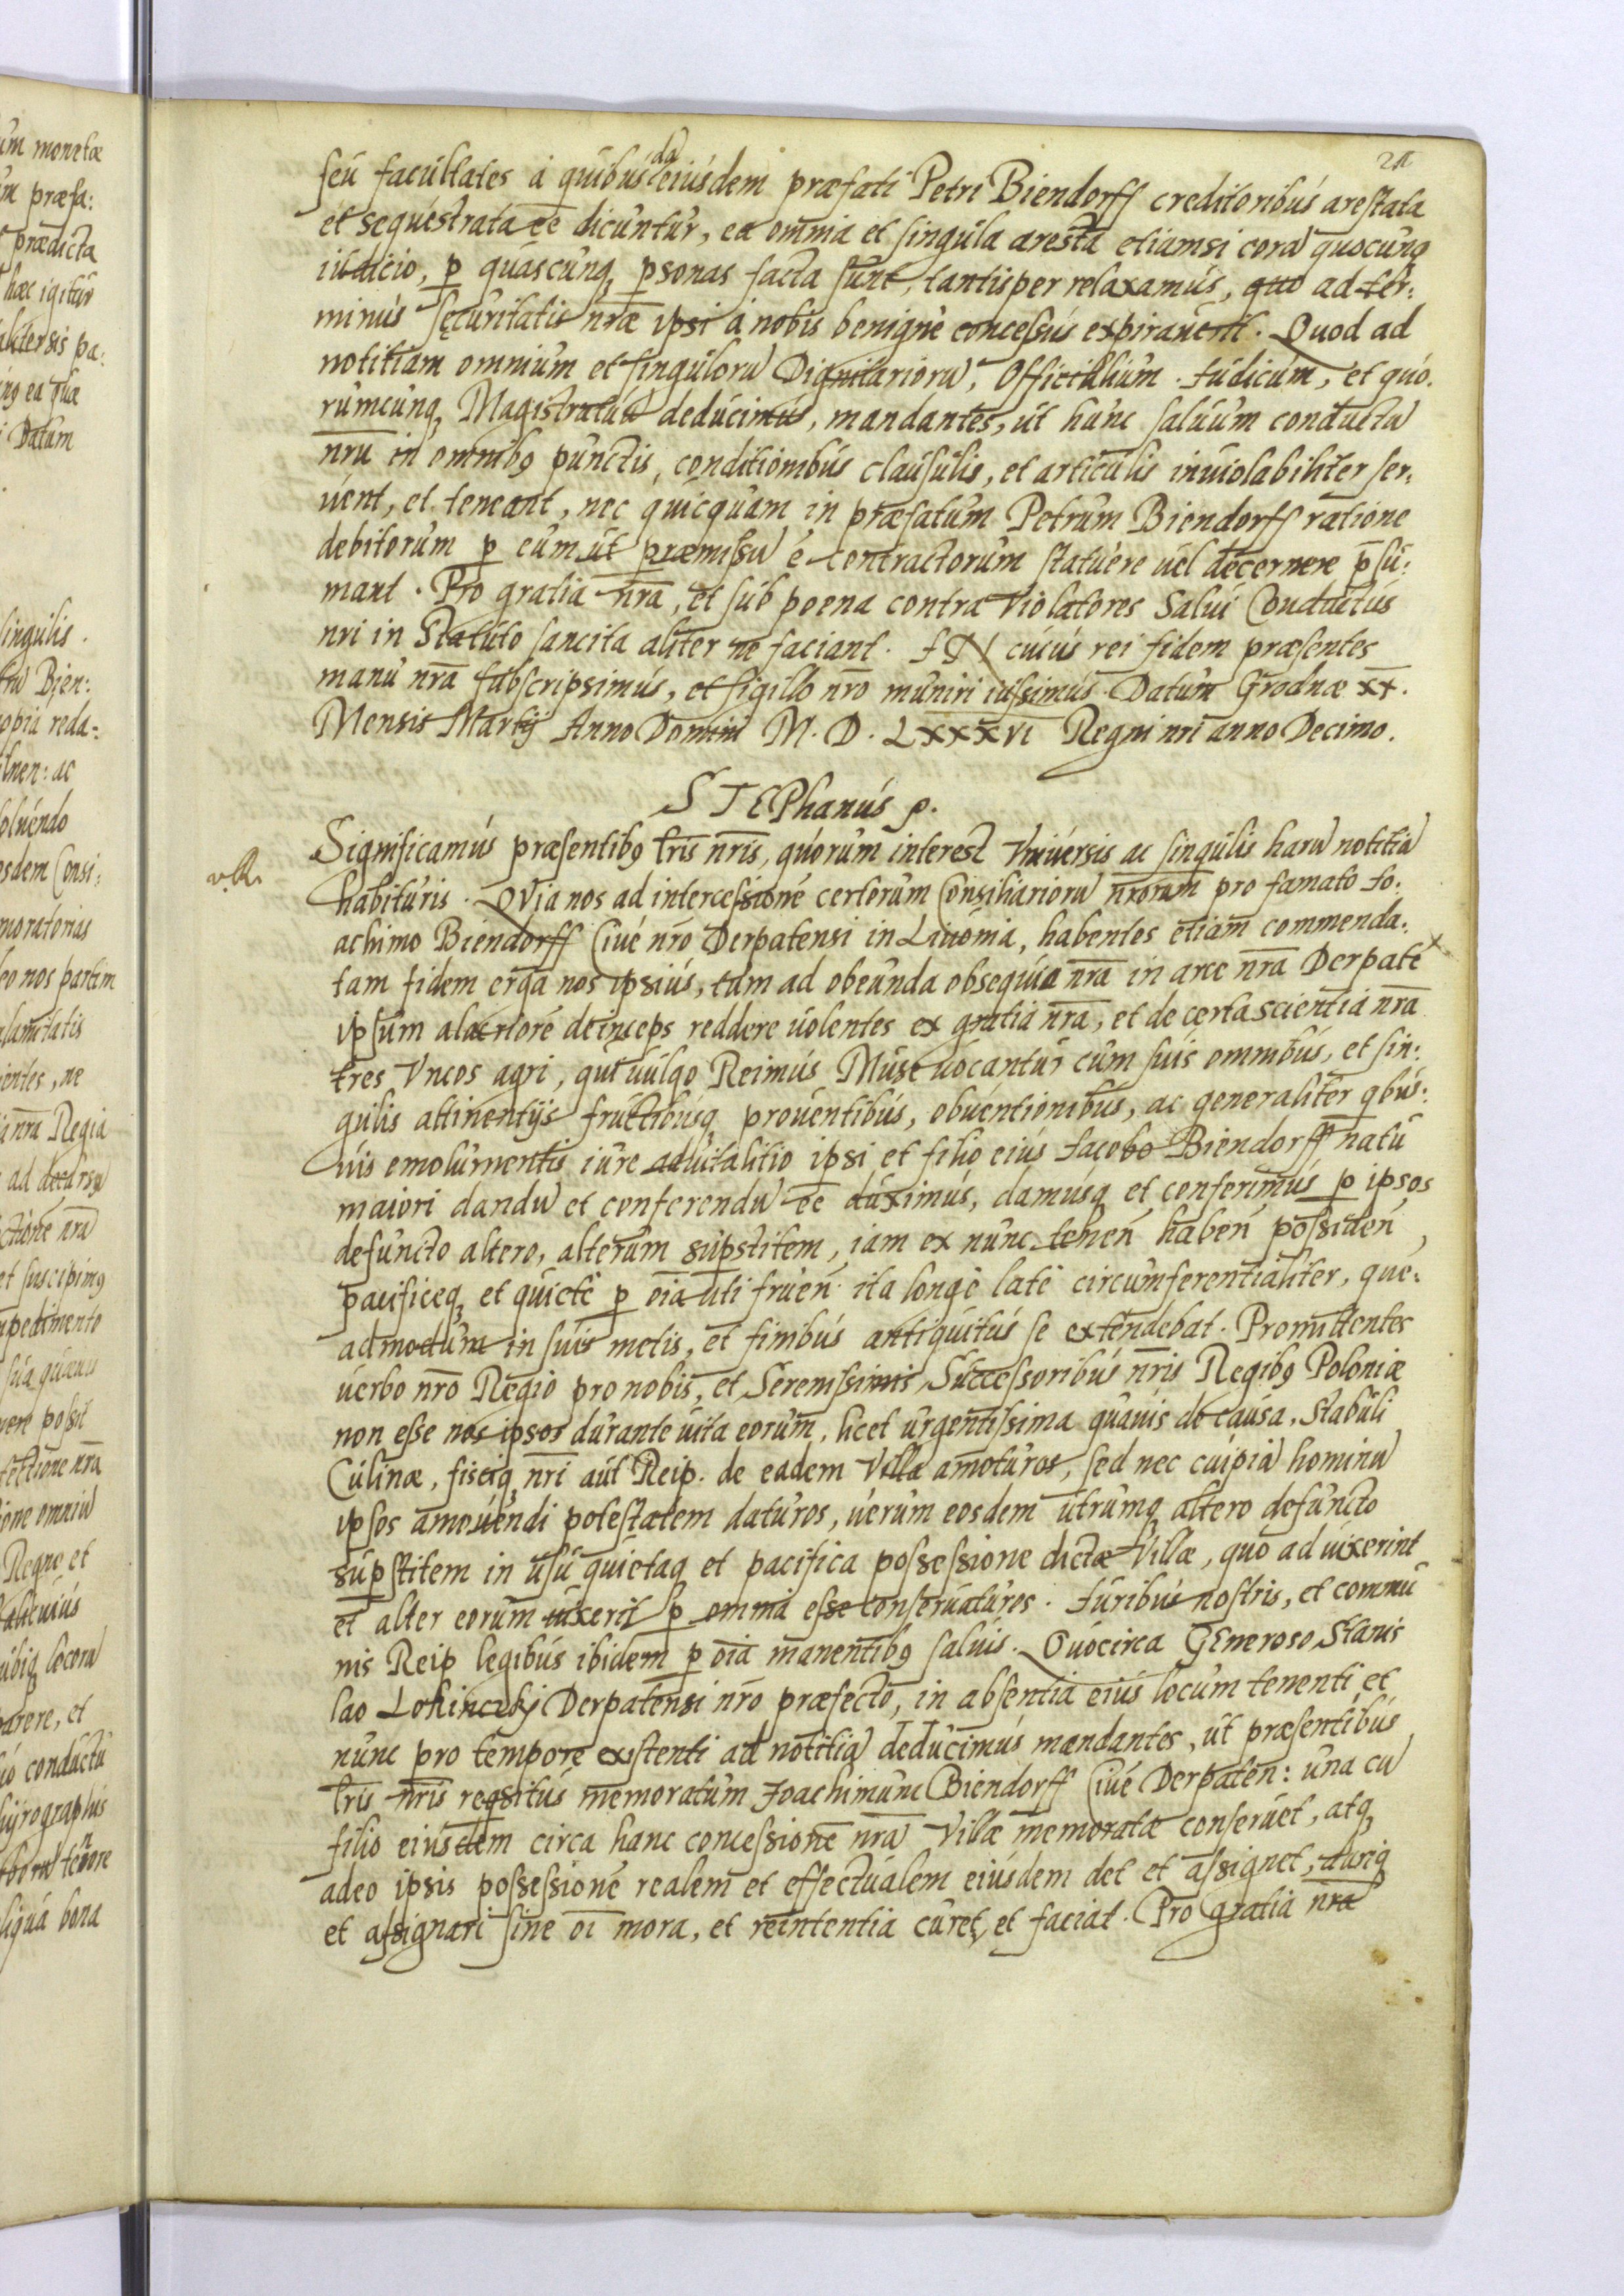 21
seu facultates à quibusda eiusdem præfati Petri Biendorff creditoribus arestata
et sequestrata ēē dicuntur, ea omnia et singula aresta etiamsi corā quocunq
iudicio, p quascunq psonas facta sunt, tantisper relaxamus, quo ad ter:
minus securitatis nræ ipsi à nobis benignè concessus expirauerit. Quod ad
notitiam omnium et singulorū Dignitariorū, Officialium. Iudicum, et quo.
rumcunq Magistratuū deducimus, mandantes, ut hunc saluum conductū
nrū in omnibꝯ punctis, conditionibus clausulis, et articulis inuiolabiliter ser,
uent, et teneant, nec quicquam in præfatum Petrum Biendorff ratione
debitorum p eum ut præmissū ē contractorum statuere uel decernere p̄su:
mant. Pro gratia nra, et sub poena contra Violatores Salui Conductus
nri in Statuto sancita aliter ne faciant. IN cuius rei fidem præsentes
manu nra subscripsimus, et sigillo nro muniri iussimus. Datum Grodnæ XX.
Mensis Martij Anno Domini M. D. LXXXVI Regni nri anno Decimo.
STEPhanus p.
Significamus præsentibꝯ lris nris, quorum interest Vniuersis ac singulis harū notitiā
habituris. QVia nos ad intercessionē certorum Consiliariorū nrorum pro famato Io:
achimo Biendorff Ciue nro Derpatensi in Liuonia, habentes etiam commenda:
tam fidem erga nos ipsius, tum ad obeunda obsequia nra in arce nra Derpatē
ipsum alacriorē deinceps reddere uolentes ex gratia nra, et de certa scientia nra
tres Vncos agri, qui uulgo Reimus Muse uocantur cum suis omnibus, et sin:
gulis attinentijs fructibusq prouentibus, obuentionibus, ac generaliter qbus:
uis emolumentis iure aduitalitio ipsi et filio eius Iacobo Biendorff natu
maiori dandū et conferendū ēē duximus, damusq et conferimus p ipsos
defuncto altero, alterum supstitem, iam ex nunc tenen̄ haben̄ possiden̄,
pacificeq et quietè p oīa uti fruen̄. ita longè latè circumferentialiter, quē.
admodum in suis metis, et finibus antiquitus se extendebat. Promittentes
uerbo nro Regio pro nobis, et Serenissimis Successoribus nris Regibꝯ Poloniæ
non esse nos ipsos durante uita eorum, licet urgentissima quauis de causa, Stabuli
Culinæ, fisciq nri aut Reip. de eadem Villa amoturos, sed nec cuipiā hominū
ipsos amouendi potestatem daturos, uerum eosdem utrumq altero defuncto
supstitem in usu quietaq et pacifica possessione dictæ Villæ, quo ad uixerint
et alter eorum uixerit p omnia esse conseruaturos. Iuribus nostris, et commu
nis Reip legibus ibidem p oīa manentibꝯ saluis. Quocirca GEneroso Stanis
lao Lokinczkj Derpatensi nro præfecto, in absentia eius locum tenenti et
nunc pro tempore existenti ad notitiā deducimus mandantes, ut præsentibus
lris nris reqsitus memoratum Joachimum Biendorff Ciuē Derpaten: una cū
filio eiusdem circa hanc concessionē nrā Villæ memoratæ conseruet, atq
adeo ipsis possessionē realem et effectualem eiusdem det et assignet, dariq
et assignari sine oī mora, et reintentia curet, et faciat. Pro gratia nra